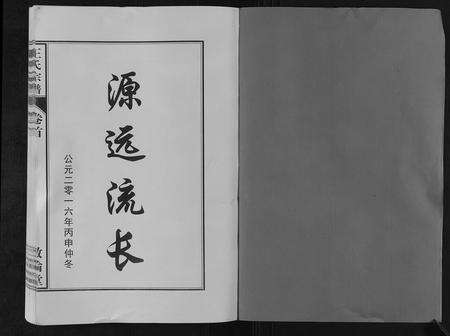 源远流长
公元二零一六年丙申仲冬
王氏宗谱
卷首
敦伦堂